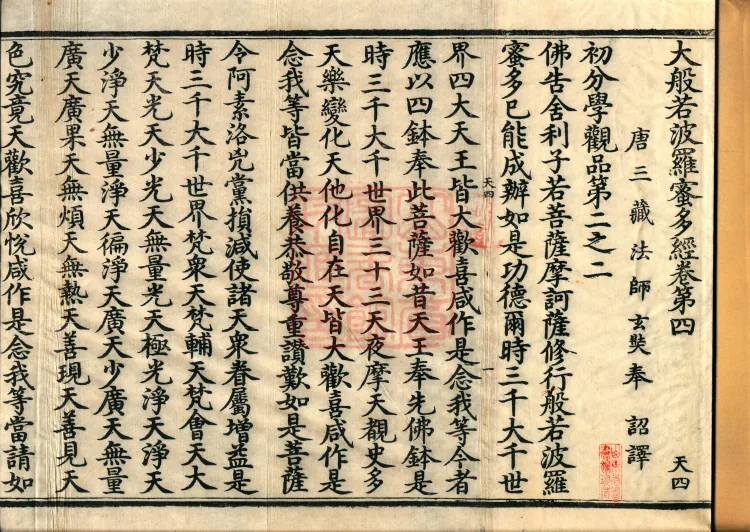 大般若波羅蜜多經卷第四 天四
唐三藏法師玄奘奉 詔譯
初分學觀品第二之二
佛告舍利子若菩薩摩訶薩修行般若波羅
蜜多已能成辦如是功德爾時三千大千世
界四大天王皆大歡喜咸作是念我等今者
應以四鉢奉此菩薩如昔天王奉先佛鉢是
天四 一
時三千大千世界三十三天夜摩天覩史多
天樂變化天他化自在天皆大歡喜咸作是
念我等皆當供養恭敬尊重讚歎如是菩薩
令阿素洛兇黨損減使諸天衆眷屬增益是
時三千大千世界梵衆天梵輔天梵會天大
梵天光天少光天無量光天極光淨天淨天
少淨天無量淨天徧淨天廣天少廣天無量
廣天廣果天無煩天無熱天善現天善見天
色究竟天歡喜欣悅咸作是念我等當請如